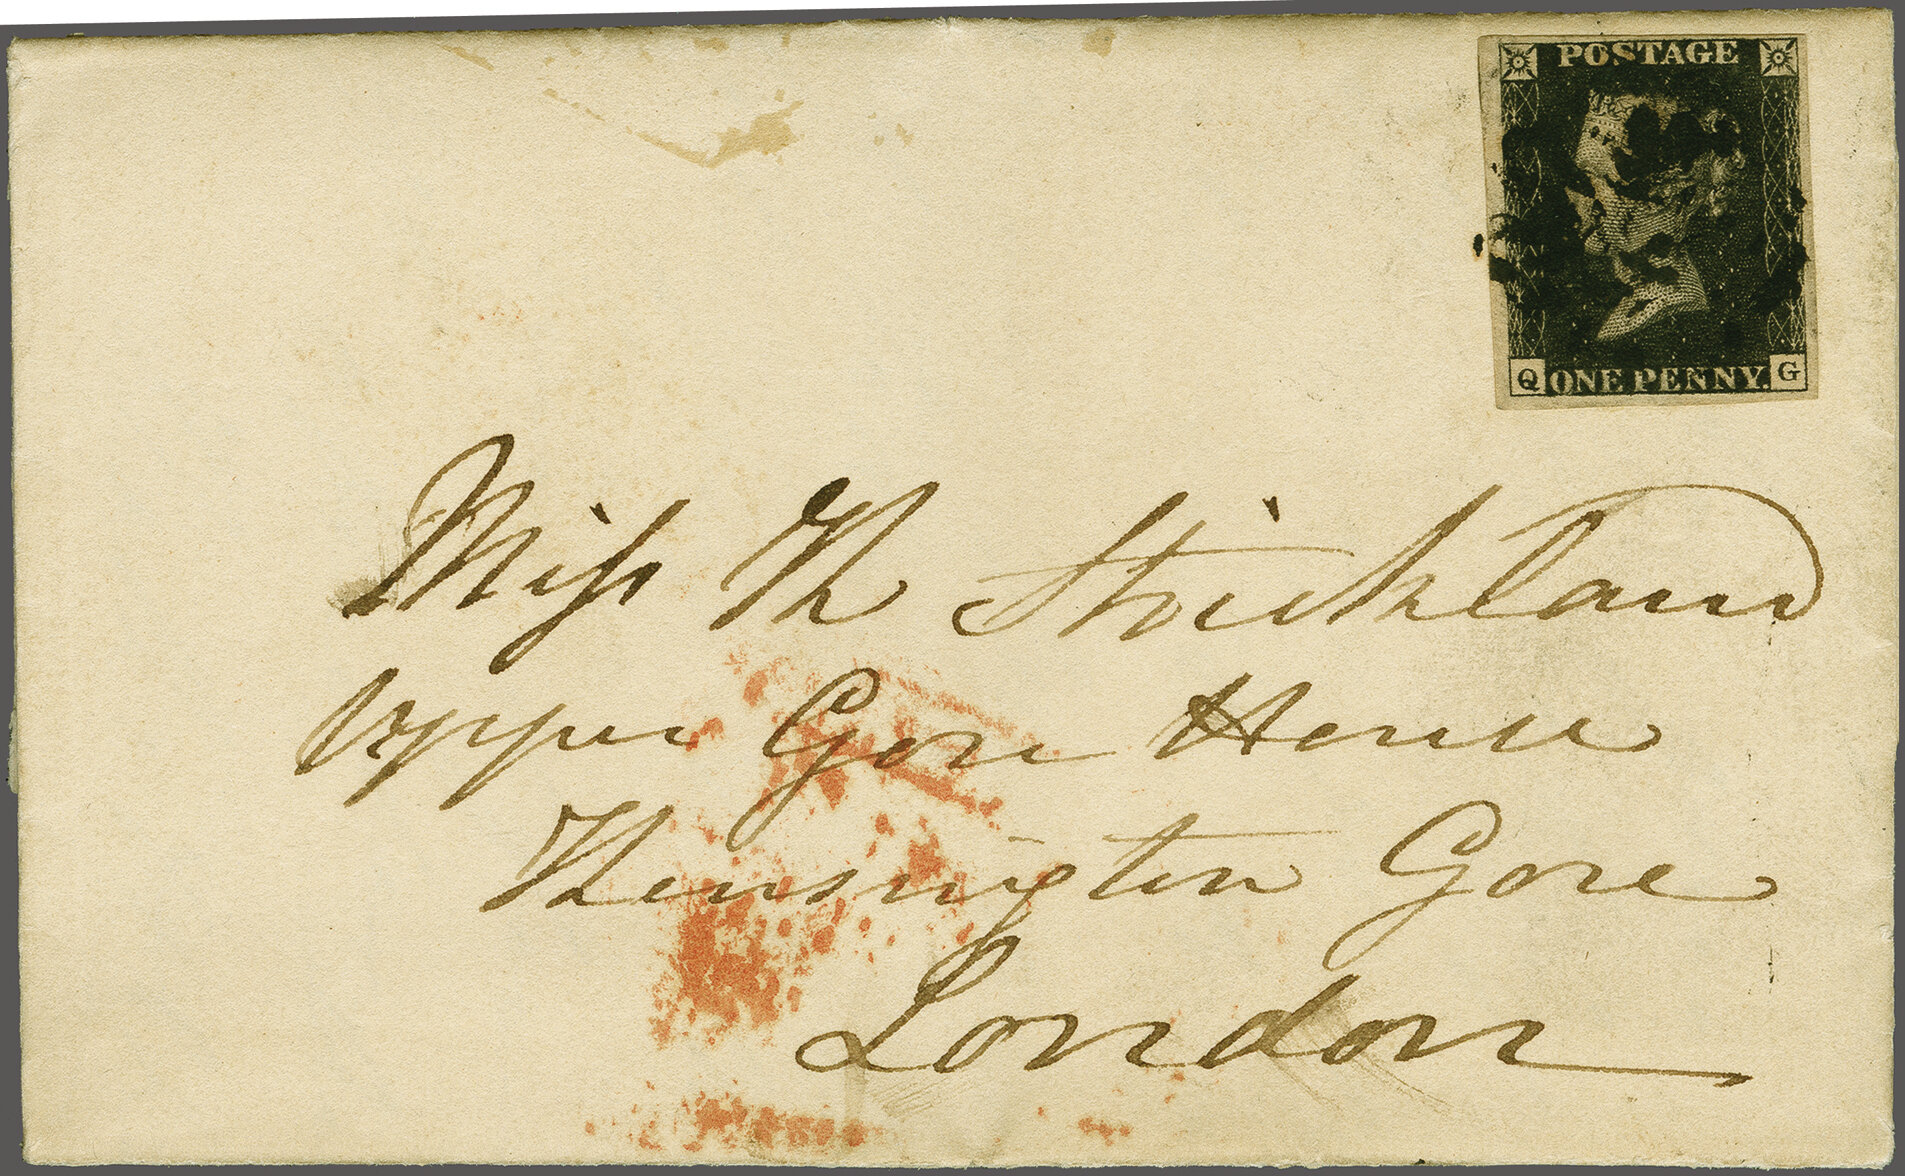 POSTAGE
Q ONE PENNY. G
Miss K Strickland
Upper Gore House
Kensington Gore
London